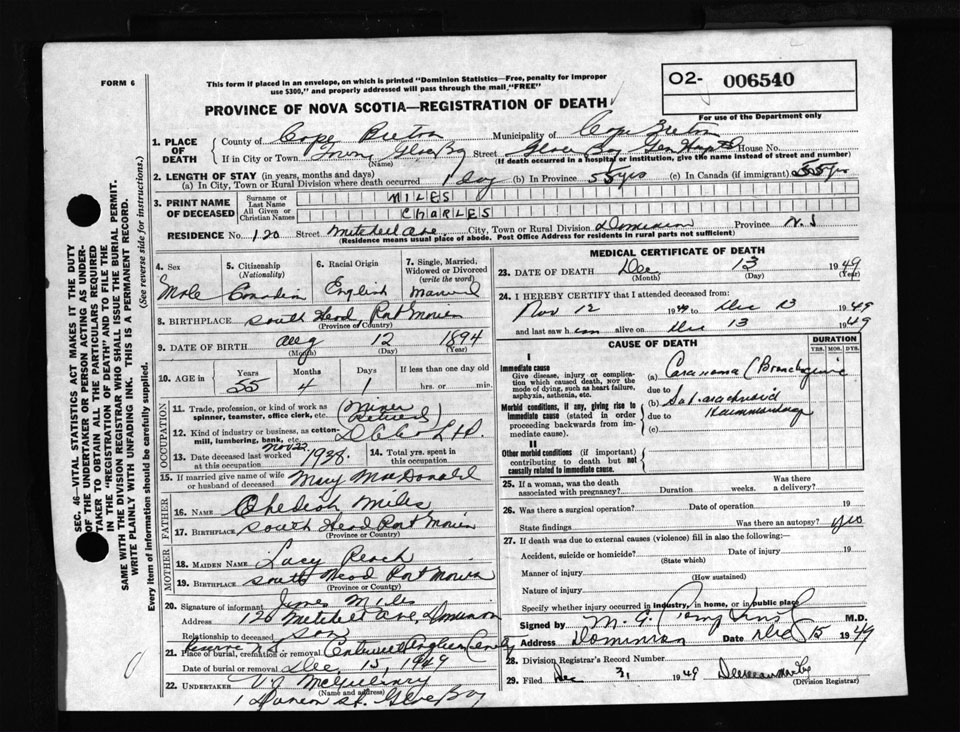 FORM 6
This form if placed in an envelope, on which is printed "Dominion Statistics—Free, penalty for improper
use $300," and properly addressed will pass through the mail "FREE"
PROVINCE OF NOVA SCOTIA—REGISTRATION OF DEATH
O2- 006540
For use of the Department only
SEC. 46—VITAL STATISTICS ACT MAKES IT THE DUTY
OF THE UNDERTAKER OR PERSON ACTING AS UNDER-
TAKER TO OBTAIN ALL THE PARTICULARS REQUIRED
IN THE "REGISTRATION OF DEATH" AND TO FILE THE
SAME WITH THE DIVISION REGISTRAR WHO SHALL ISSUE THE BURIAL PERMIT.
WRITE PLAINLY WITH UNFADING INK. THIS IS A PERMANENT RECORD.
Every item of information should be carefully supplied. (See reverse side for instructions.)
1. PLACE OF DEATH County of Cape Breton Municipality of Cape Breton
If in City or Town Town Glace Bay (Name) Street Glace Bay Gen Hosptl House No.
(If death occurred in a hospital or institution, give the name instead of street and number)
2. LENGTH OF STAY (in years, months and days)
(a) In City, Town or Rural Division where death occurred 1 day (b) In Province 55 yrs (c) In Canada (if immigrant) 55 yrs
3. PRINT NAME OF DECEASED Surname or Last Name MILES
All Given or Christian Names CHARLES
RESIDENCE No. 120 Street Mitchell Ave City, Town or Rural Division Dominion Province N.S
(Residence means usual place of abode. Post Office Address for residents in rural parts not sufficient)
4. Sex Male
5. Citizenship (Nationality) Canadian
6. Racial Origin English
7. Single, Married, Widowed or Divorced (write the word) Married
8. BIRTHPLACE South Head Port Morien
(Province or Country)
9. DATE OF BIRTH Aug 12 1894
(Month) (Day) (Year)
10. AGE in Years 55 Months 4 Days 1 If less than one day old hrs. or min.
OCCUPATION
11. Trade, profession, or kind of work as spinner, teamster, office clerk, etc. Miner (Retired)
12. Kind of industry or business, as cotton-mill, lumbering, bank, etc.
13. Date deceased last worked at this occupation Nov 22 1938
14. Total yrs. spent in this occupation
15. If married give name of wife or husband of deceased Mary MacDonald
FATHER
16. Name Miles
17. BIRTHPLACE South Head Port Morien
(Province or Country)
MOTHER
18. MAIDEN NAME Lucy Peach
19. BIRTHPLACE South Head Port Morien
(Province or Country)
20. Signature of informant James Miles
Address 120 Mitchell Ave, Dominion
Relationship to deceased Son
21. Place of burial, cremation or removal Reserve N.S. Anglican
Date of burial or removal Dec 15, 1949
22. UNDERTAKER V J McGillivray
(Name and address)
1 St. Glace Bay
MEDICAL CERTIFICATE OF DEATH
23. DATE OF DEATH Dec 13 1949
(Month) (Day) (Year)
24. I HEREBY CERTIFY that I attended deceased from:
Nov 12 1949 to Dec 13 1949
and last saw him alive on Dec 13 1949
CAUSE OF DEATH DURATION
YRS. MOS. DYS.
I
Immediate cause
Give disease, injury or complication which caused death, NOT the mode of dying, such as heart failure, asphyxia, asthenia, etc.
(a) Carcinoma (Bronchogenic
due to
Morbid conditions, if any, giving rise to immediate cause (stated in order proceeding backwards from immediate cause).
(b) Subarachnoid Haemorrhage
due to
(c)
II
Other morbid conditions (if important) contributing to death but not causally related to immediate cause.
25. If a woman, was the death associated with pregnancy? Duration weeks. Was there a delivery?
26. Was there a surgical operation? Date of operation 19
State findings Was there an autopsy? yes
27. If death was due to external causes (violence) fill in also the following:
Accident, suicide or homicide? Date of injury 19
(State which)
Manner of injury
(How sustained)
Nature of injury
Specify whether injury occurred in industry, in home, or in public place
Signed by M. G. M.D.
Address Dominion Date Dec 15 1949
28. Division Registrar's Record Number
29. Filed Dec 31 1949
(Division Registrar)